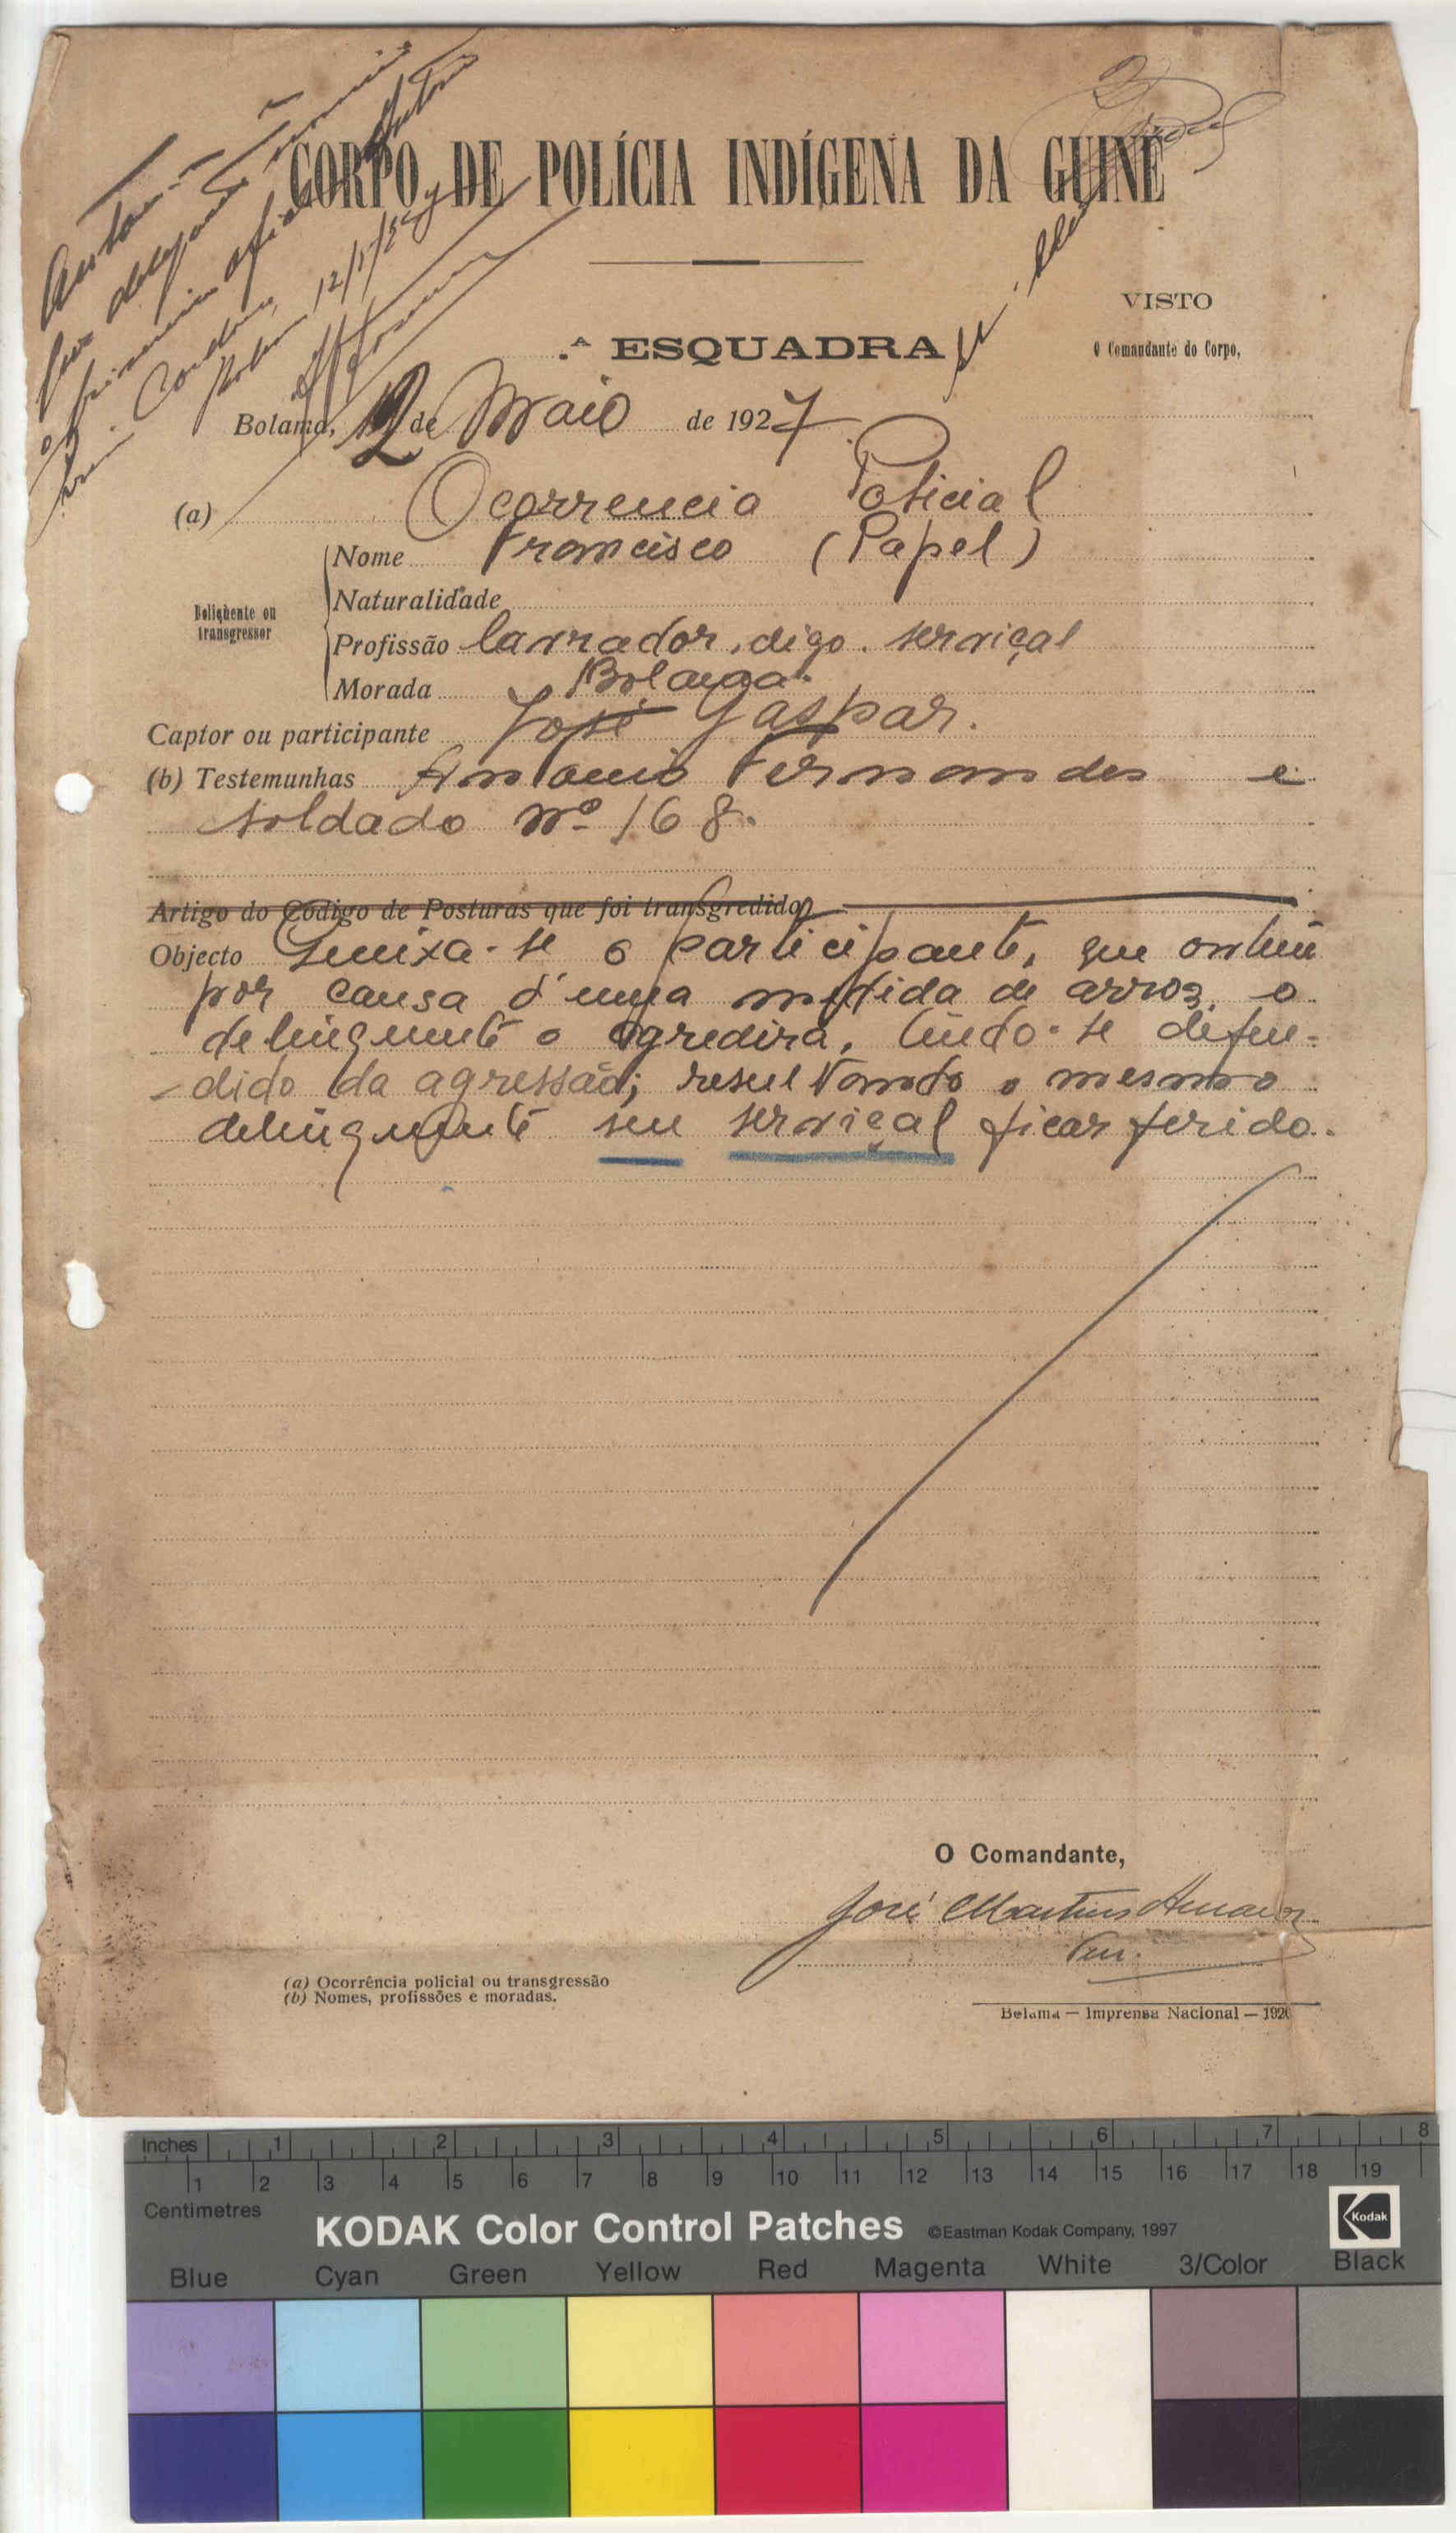 CORPO DE POLÍCIA INDÍGENA DA GUINÉ
VISTO
O Comandante do Corpo,
.ª ESQUADRA
Bolama, 12 de Maio de 1927
(a) Ocorrencia Policial
Deliqùente ou transgressor
Nome Francisco (Papel)
Naturalidade
Profissão lavrador, digo. serviçal
Morada Bolama.
Captor ou participante José Gaspar.
(b) Testemunhas Antonio Fernandes e
soldado nº 168.
Artigo do Código de Posturas que foi transgredido
Objecto Queixa-se o participante, que ontem
por causa d'uma medida de arroz, o
delinquente o agredira, tendo-se defen-
-dido da agressão; resultando o mesmo
delinquente seu serviçal ficar ferido.
O Comandante,
José Martins
(a) Ocorrência policial ou transgressão
(b) Nomes, profissões e moradas.
Bolama — Imprensa Nacional — 1926
Inches 1 2 3 4 5 6 7 8
1 2 3 4 5 6 7 8 9 10 11 12 13 14 15 16 17 18 19
Centimetres
KODAK Color Control Patches ©Eastman Kodak Company, 1997 Kodak
Blue Cyan Green Yellow Red Magenta White 3/Color Black